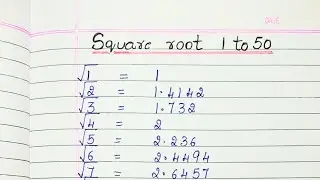 Square root 1 to 50
√1 = 1
√2 = 1.4142
√3 = 1.732
√4 = 2
√5 = 2.236
√6 = 2.4494
√7 = 2.6457